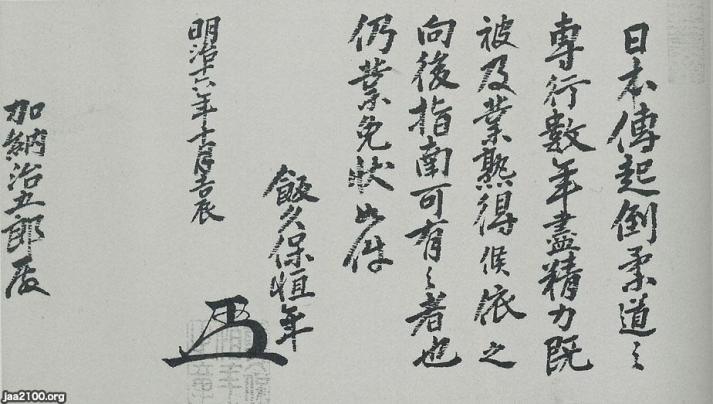 日本傳起倒柔道之
専行數年盡精力既
被及業熟得候依之
向後指南可有之者也
仍業免状如件
飯久保恒年
明治十六年十月吉辰
加納治五郎殿
jaa2100.org